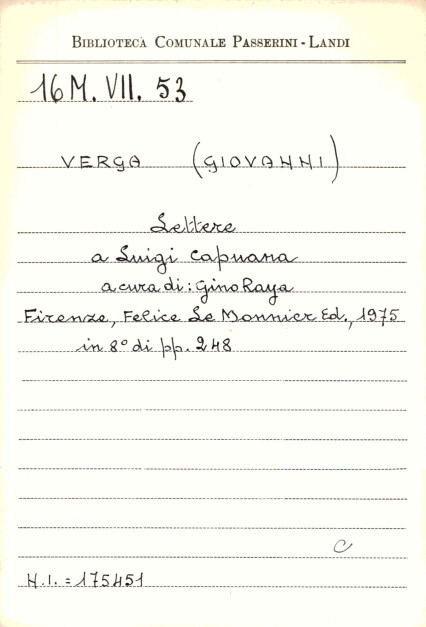 BIBLIOTECA COMUNALE PASSERINI - LANDI
16 M. VII. 53
VERGA (GIOVANNI)
Lettere
a Luigi Capuana
a cura di: Gino Raya
Firenze, Felice Le Monnier Ed., 1975
in 8° di pp. 248
C
N.I. = 175451